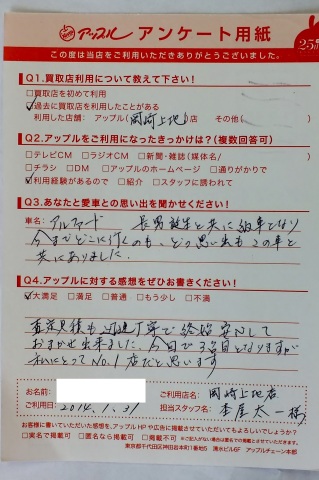 アップル アンケート用紙
25周
この度は当店をご利用いただきありがとうございました。
Q1.買取店利用について教えて下さい!
□買取店を初めて利用
☑過去に買取店を利用したことがある
利用した店舗：アップル(岡崎上地)店 その他(
Q2.アップルをご利用になったきっかけは?(複数回答可)
□テレビCM □ラジオCM □新聞・雑誌(媒体名/ )
□チラシ □DM □アップルのホームページ □通りがかりで
☑利用経験があるので □紹介 □スタッフに誘われて
Q3.あなたと愛車との思い出を聞かせください!
車名: アルファード 長男誕生と共に納車となり
今までどこに行くのも、どの思い出もこの車と
共にありました。
Q4.アップルに対する感想をぜひお書きください!
☑大満足 □満足 □普通 □もう少し □不満
査定見積も丁寧で終始安心して
おまかせ出来ました。今回で3台目となりますが
私にとってNo.1店だと思います
お名前:
ご利用店名: 岡崎上地店
ご利用日: 2014.1.31
担当スタッフ名: 太一様
お客様に書いていただいた感想を、アップルHPや広告に掲載させていただいてもよろしいでしょうか?
□実名で掲載可 □匿名なら掲載可 □掲載不可 ※ご記入がない場合は匿名での掲載とさせていただきます。
東京都千代田区神田岩本町1番地5 清水ビル6F アップルチェーン本部